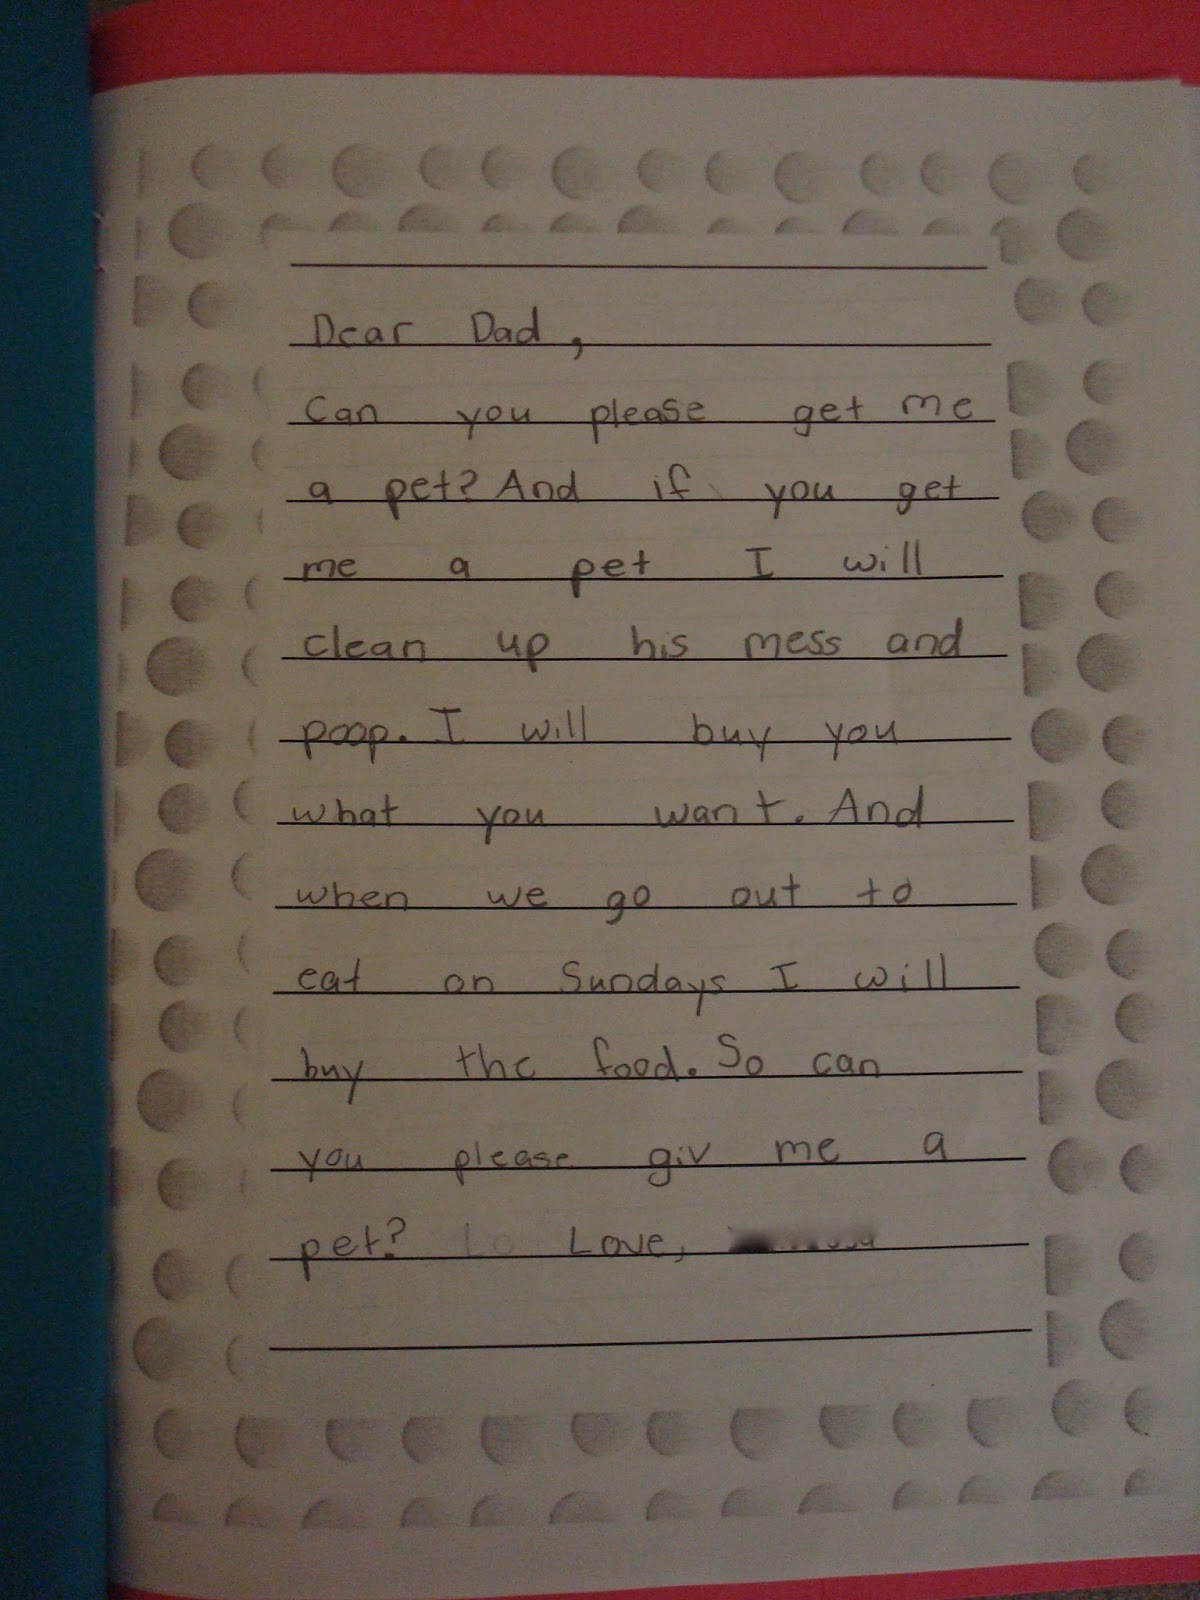 Dear Dad,
Can you please get me
a pet? And if you get
me a pet I will
clean up his mess and
poop. I will buy you
what you want. And
when we go out to
eat on Sundays I will
buy the food. So can
you please giv me a
pet? Love,